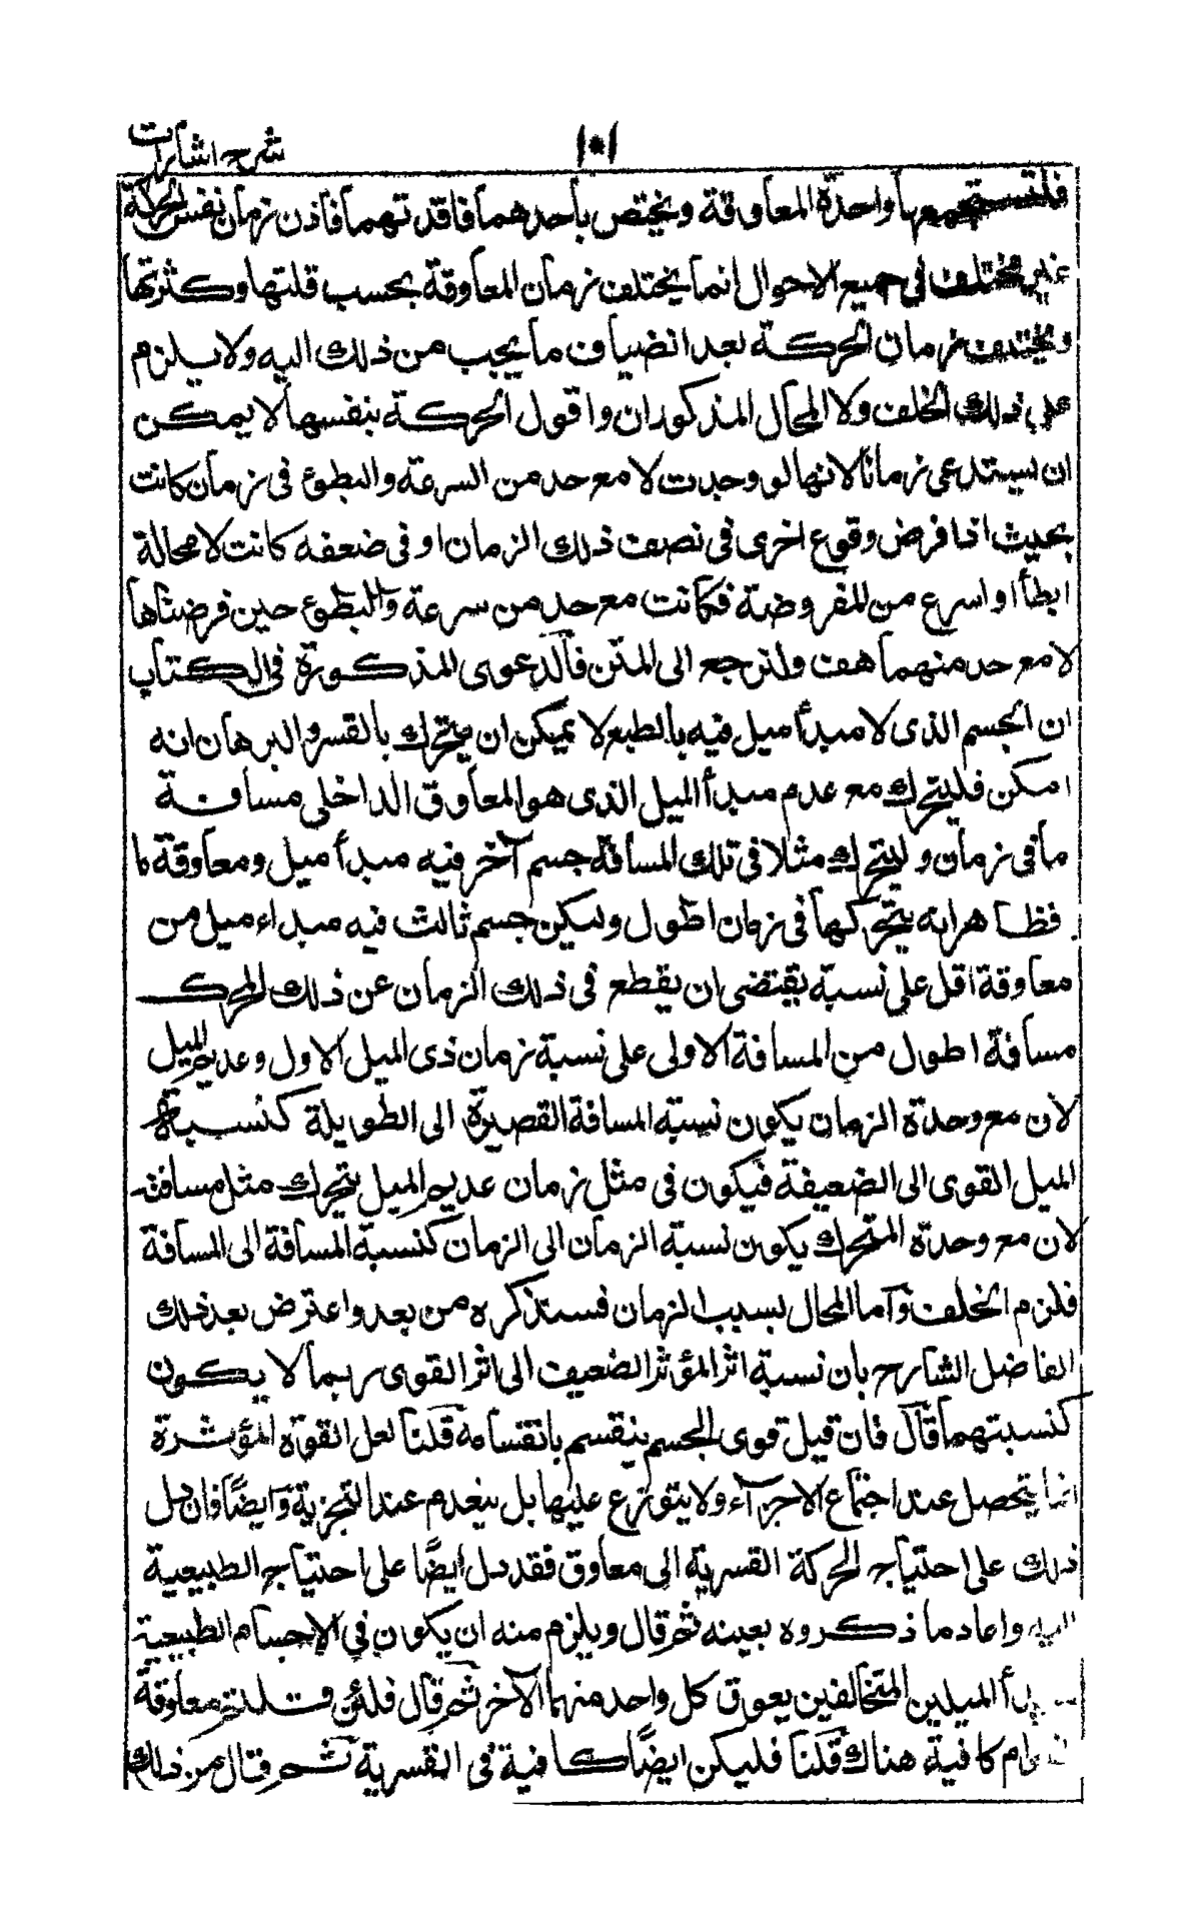 شرح اشارات
١٠١
واحدة المعاوقة ويختص بأحدهما فاقدتهما فاذن زمان نفس الحركة
غير مختلف في جميع الاحوال انما يختلف زمان المعاوقة بحسب قلتها وكثرتها
ويختلف زمان الحركة بعد انضياف ما يجب من ذلك اليه ولا يلزم
على ذلك الخلف ولا المحال المذكوران واقول الحركة بنفسها لا يمكن
ان يستدعى زمانا لانها لو وجدت لا مع حد من السرعة والبطوء فى زمان كانت
بحيث اذا فرض وقوع اخرى فى نصف ذلك الزمان او فى ضعفه كانت لا محالة
ابطأ او اسرع من المفروضة فكانت مع حد من سرعة والبطوء حين فرضناها
لا مع حد منهما هف ولنرجع الى المتن فالدعوى المذكورة فى الكتاب
ان الجسم الذى لا مبدأ ميل فيه بالطبع لا يمكن ان يتحرك بالقسر والبرهان انه
امكن فليتحرك مع عدم مبدأ الميل الذى هو المعاوق الداخلى مسافة
ما فى زمان وليتحرك مثلا فى تلك المسافة جسم آخر فيه مبدأ ميل ومعاوقة ما
فظاهر انه يتحركها فى زمان اطول وليكن جسم ثالث فيه مبداء ميل من
معاوقة اقل على نسبة يقتضى ان يقطع فى ذلك الزمان عن ذلك المحرك
مسافة اطول من المسافة الاولى على نسبة زمان ذى الميل الاول وعديم الميل
لان مع وحدة الزمان يكون نسبة المسافة القصيرة الى الطويلة كنسبة
الميل القوى الى الضعيفة فيكون فى مثل زمان عديم الميل يتحرك مثل مسافته
لان مع وحدة المتحرك يكون نسبة الزمان الى الزمان كنسبة المسافة الى المسافة
فلزم الخلف وآما المحال بسبب الزمان فستذكره من بعد واعترض بعد ذلك
الفاضل الشارح بان نسبة اثر المؤثر الضعيف الى اثر القوى ربما لا يكون
كنسبتهما قال فان قيل قوى الجسم ينقسم بانقسامه قلنا لعل القوة المؤثرة
انما يتحصل عند اجتماع الاجزآء ولا يتوزع عليها بل ينعدم عند التجزية وايضًا فان دل
ذلك على احتياج الحركة القسرية الى معاوق فقد دل ايضًا على احتياج الطبيعية
اليه واعاد ما ذكروه بعينه ثم قال ويلزم منه ان يكون فى الاجسام الطبيعية
الميلين المتخالفين يعوق كل واحد منهما الآخر ثم قال فلئن قلتم معاوقة
كافية هناك قلنا فليكن ايضًا كافية فى القسرية ثم قال من ذلك